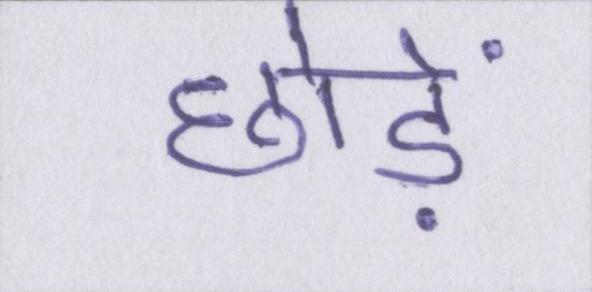 छोड़ें